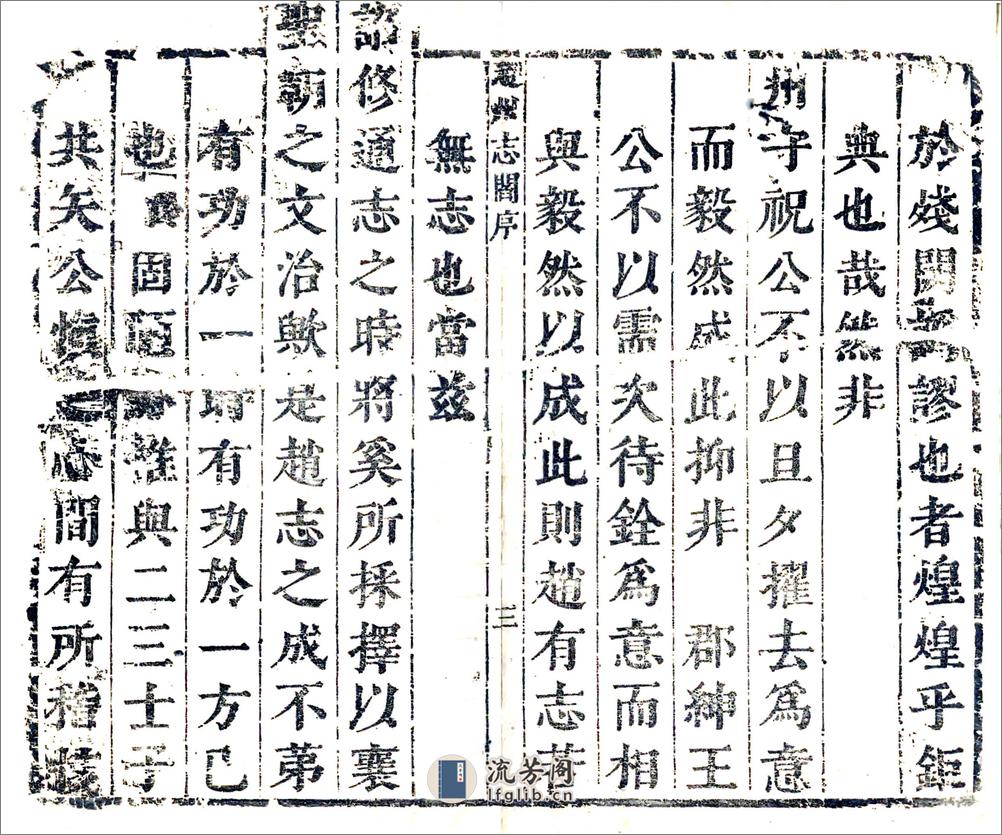 於殘闕謬也者煌煌乎鉅
典也哉然非
州守祝公不以旦夕擢去爲意
而毅然成此抑非　郡紳王
公不以需次待銓爲意而相
與毅然以成此則趙有志若
無志也當兹
趙州志閻序　三
詔修通志之時將奚所採擇以襄
聖朝之文治歟是趙志之成不苐
有功於一時有功於一方已
也固陋雅與二三士子
共矢公慎志間有所稽
流芳阁
lfglib.cn